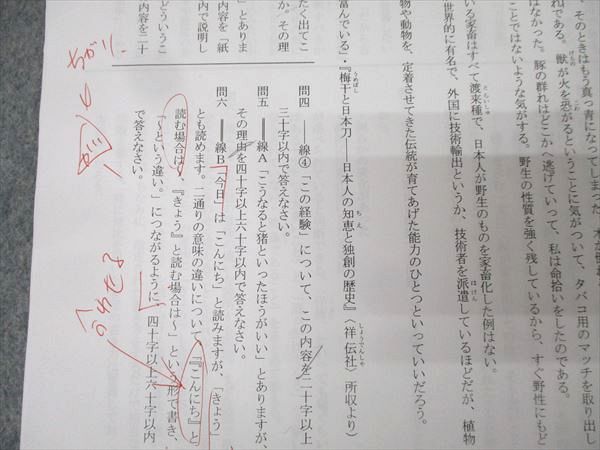 、そのときはもう真っ青になってしまった。木が倒れ
れである。獣が火を恐がるということに気がついて、タバコ用のマッチを取り出し
はなかった。豚の群れはどこかへ逃げていって、私は命拾いをしたのである。
ことではないような気がする。野生の性質を強く残しているから、すぐ野性にもど
いる家畜はすべて渡来種で、日本人が野生のものを家畜化した例はない。
世界的に有名で、外国に技術輸出というか、技術者を派遣しているほどだが、植物
物や動物を、定着させてきた伝統が育てあげた能力のひとつといっていいだろう。
富んでいる」・『梅干と日本刀――日本人の知恵と独創の歴史』(祥伝社)所収より)
問四 ――線④「この経験」について、この内容を二十字以上
三十字以内で答えなさい。
問五 ――線A「こうなると猪といったほうがいい」とありますが、
その理由を四十字以上六十字以内で答えなさい。
問六 ――線B「今日」は「こんにち」と読みますが、「きょう」
とも読めます。二通りの意味の違いについて、『こんにち』と
読む場合は、『きょう』と読む場合は〜」という形で書き、
「〜という違い。」につながるように、四十字以上六十字以内
で答えなさい。
たく出てこ
か。その理
」とありま
内容を「紙
内で説明し
どういうこ
内容を二十
ちがい、
合わせる